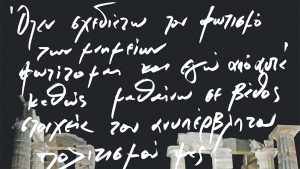 Όταν σχεδιάζω τον φωτισμό
των μνημείων
φωτίζομαι και εγώ από αυτά
καθώς μαθαίνω σε βάθος
στοιχεία του ανυπέρβλητου
πολιτισμού μας